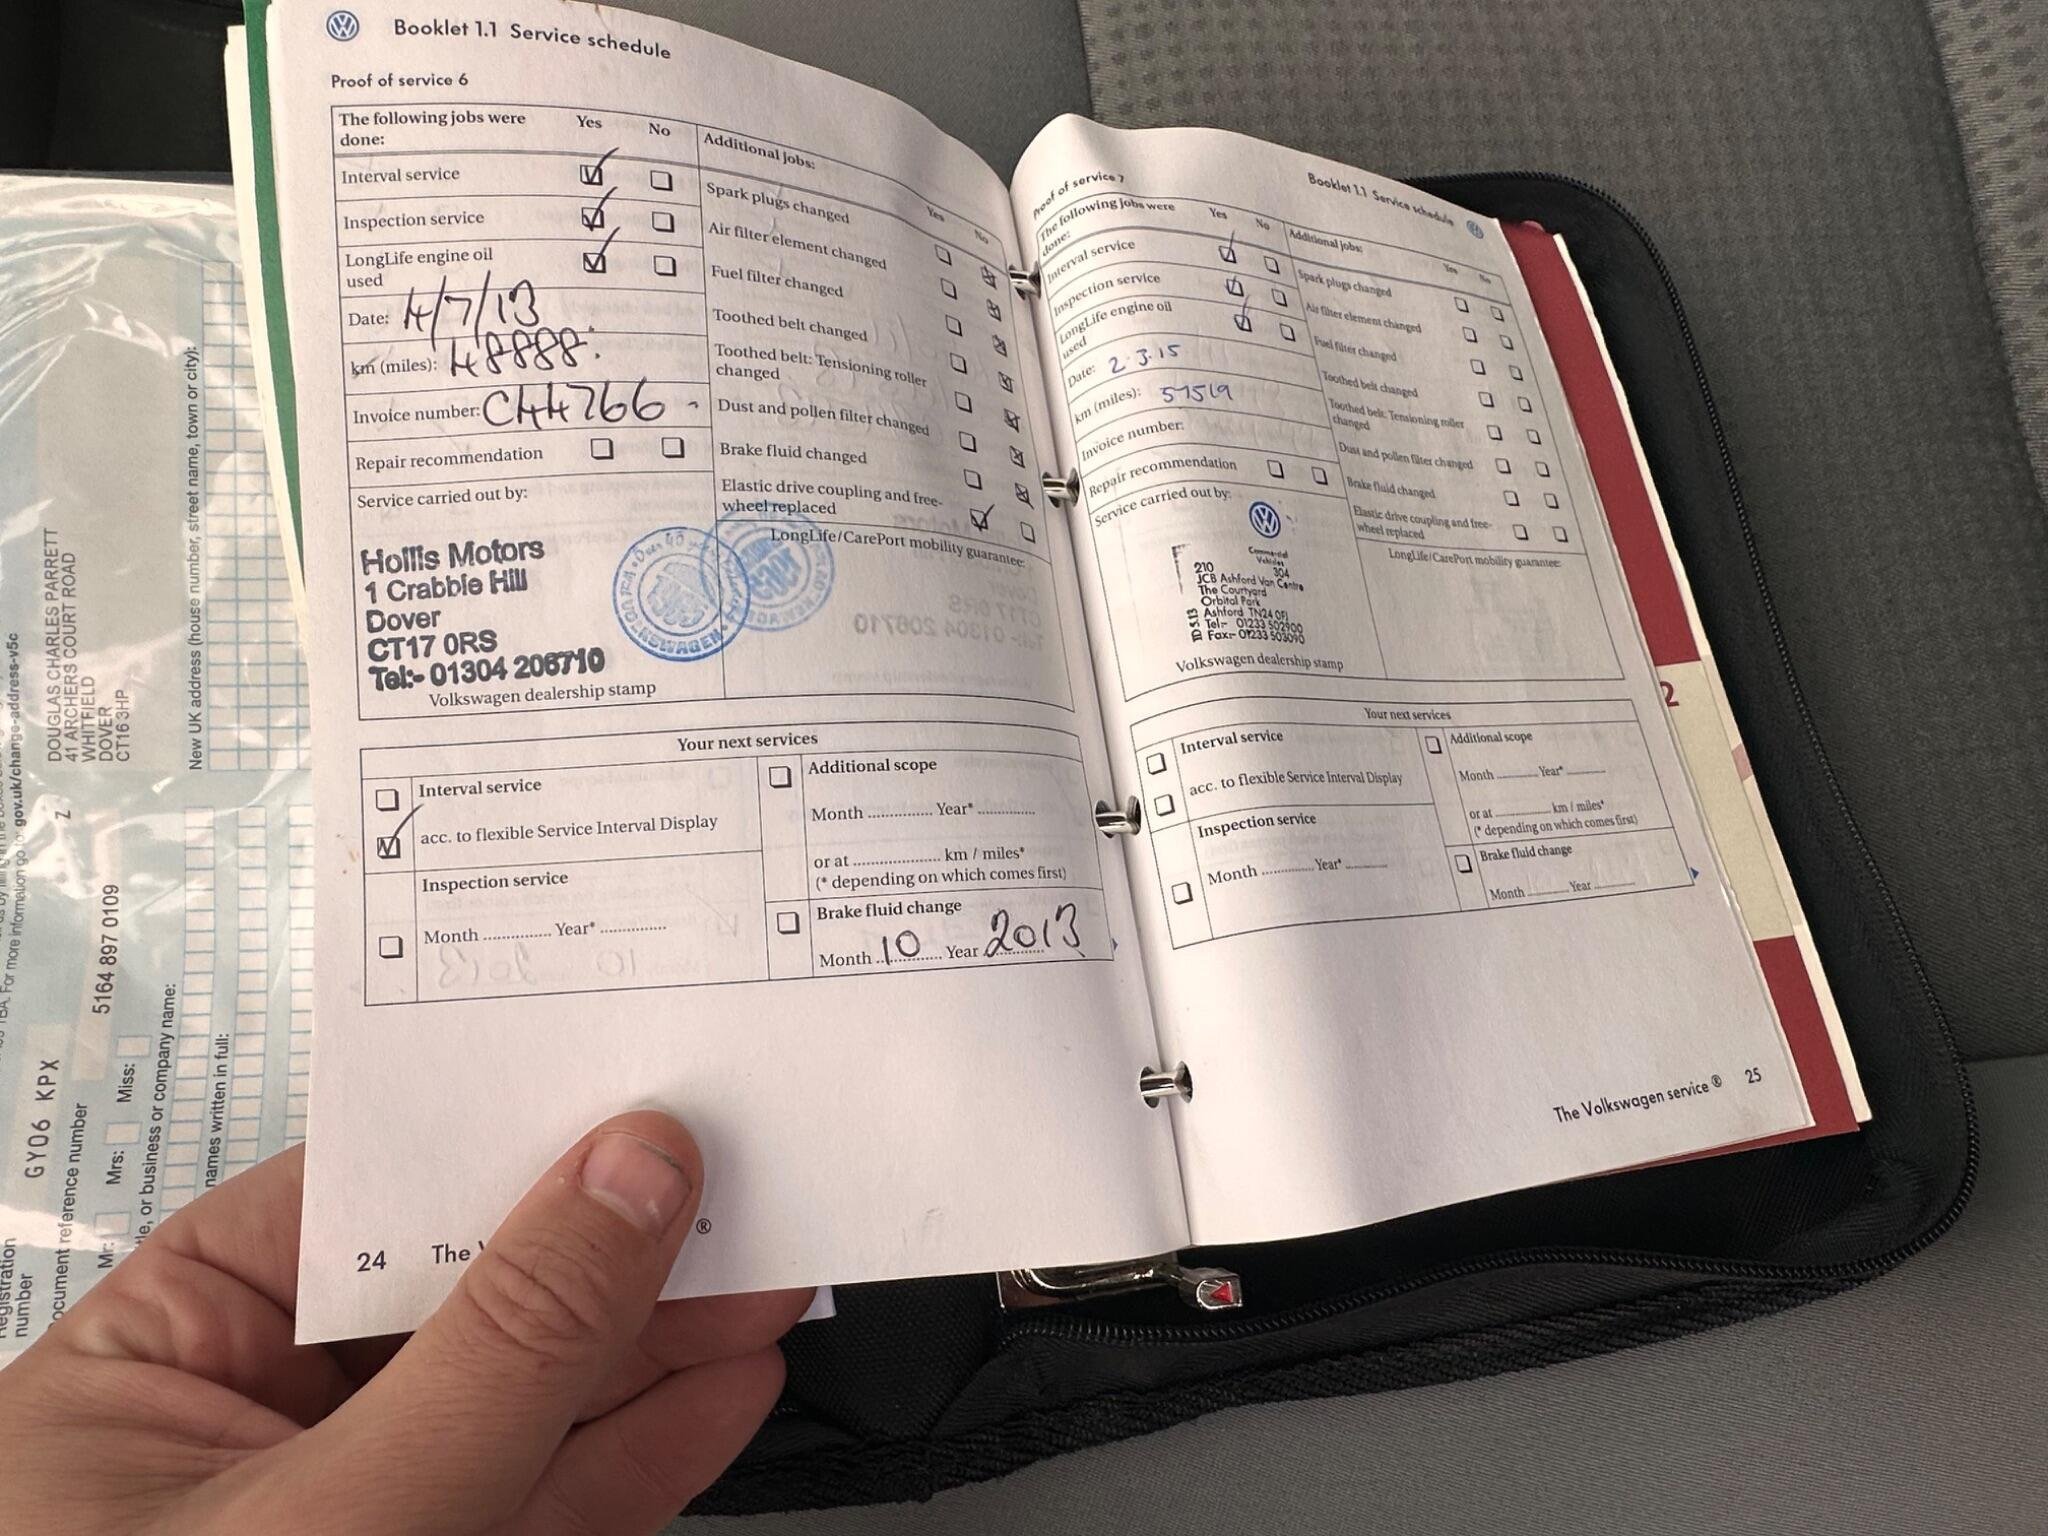 Booklet 1.1 Service schedule
Proof of service 6
The following jobs were done:
Yes
No
Interval service
Inspection service
LongLife engine oil used
Date: 4/7/13
km (miles): 48888.
Invoice number: C44766 -
Repair recommendation
Service carried out by:
Hollis Motors
1 Crabble Hill
Dover
CT17 0RS
Tel:- 01304 206710
Volkswagen dealership stamp
Additional jobs:
Yes
No
Spark plugs changed
Air filter element changed
Fuel filter changed
Toothed belt changed
Toothed belt: Tensioning roller
changed
Dust and pollen filter changed
Brake fluid changed
Elastic drive coupling and free-
wheel replaced
LongLife/CarePort mobility guarantee:
Your next services
Interval service
acc. to flexible Service Interval Display
Inspection service
Month .............. Year* ..............
Additional scope
Month .............. Year* ..............
or at .................... km / miles*
(* depending on which comes first)
Brake fluid change
Month 10 Year 2013
24
The
®
Booklet 1.1 Service schedule
Proof of service 7
The following jobs were
done:
Yes
No
Interval service
Inspection service
LongLife engine oil
used
Date: 2.3.15
km (miles): 57519
Invoice number:
Repair recommendation
Service carried out by:
Commercial
Vehicles
210
304
JCB Ashford Van Centre
The Courtyard
Orbital Park
Ashford TN24 0FJ
Tel:- 01233 502900
Fax:- 01233 503090
Volkswagen dealership stamp
Additional jobs:
Yes
No
Spark plugs changed
Air filter element changed
Fuel filter changed
Toothed belt changed
Toothed belt: Tensioning roller
changed
Dust and pollen filter changed
Brake fluid changed
Elastic drive coupling and free-
wheel replaced
LongLife/CarePort mobility guarantee:
Your next services
Interval service
acc. to flexible Service Interval Display
Inspection service
Month .............. Year* ..............
Additional scope
Month .............. Year* ..............
or at .................... km / miles*
(* depending on which comes first)
Brake fluid change
Month .............. Year ..............
The Volkswagen service ®
25
2
DOUGLAS CHARLES PARRETT
41 ARCHERS COURT ROAD
WHITFIELD
DOVER
CT16 3HP
Z
New UK address (house number, street name, town or city):
For more information go to: gov.uk/change-address-v5c
5164 897 0109
GY06 KPX
Registration
number
Document reference number
Mr:
Mrs:
Miss:
or business or company name:
names written in full: